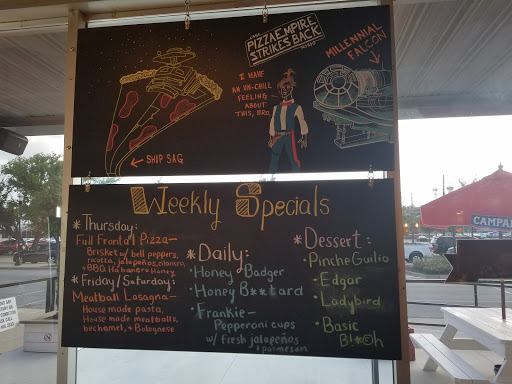 THE
PIZZA EMPIRE
STRIKES BACK
MILLENNIAL
FALCON
I HAVE
AN UN-CHILL
FEELING
ABOUT
THIS, BRO.
SHIP SAG
Weekly Specials
* Thursday:
Full Frontal Pizza -
Brisket w/ bell peppers,
ricotta, jalapeños, cilantro,
+ BBQ Habanero Honey
* Friday/Saturday:
Meatball Lasagna -
House made pasta,
House made meatballs,
bechamel, + Bolognese
* Daily:
• Honey Badger
• Honey B**tard
• Frankie -
Pepperoni cups
w/ fresh jalapeños
+ parmesan
* Dessert:
• Pinche Gulio
• Edgar
• Ladybird
• Basic
B!*@h
CAMPA